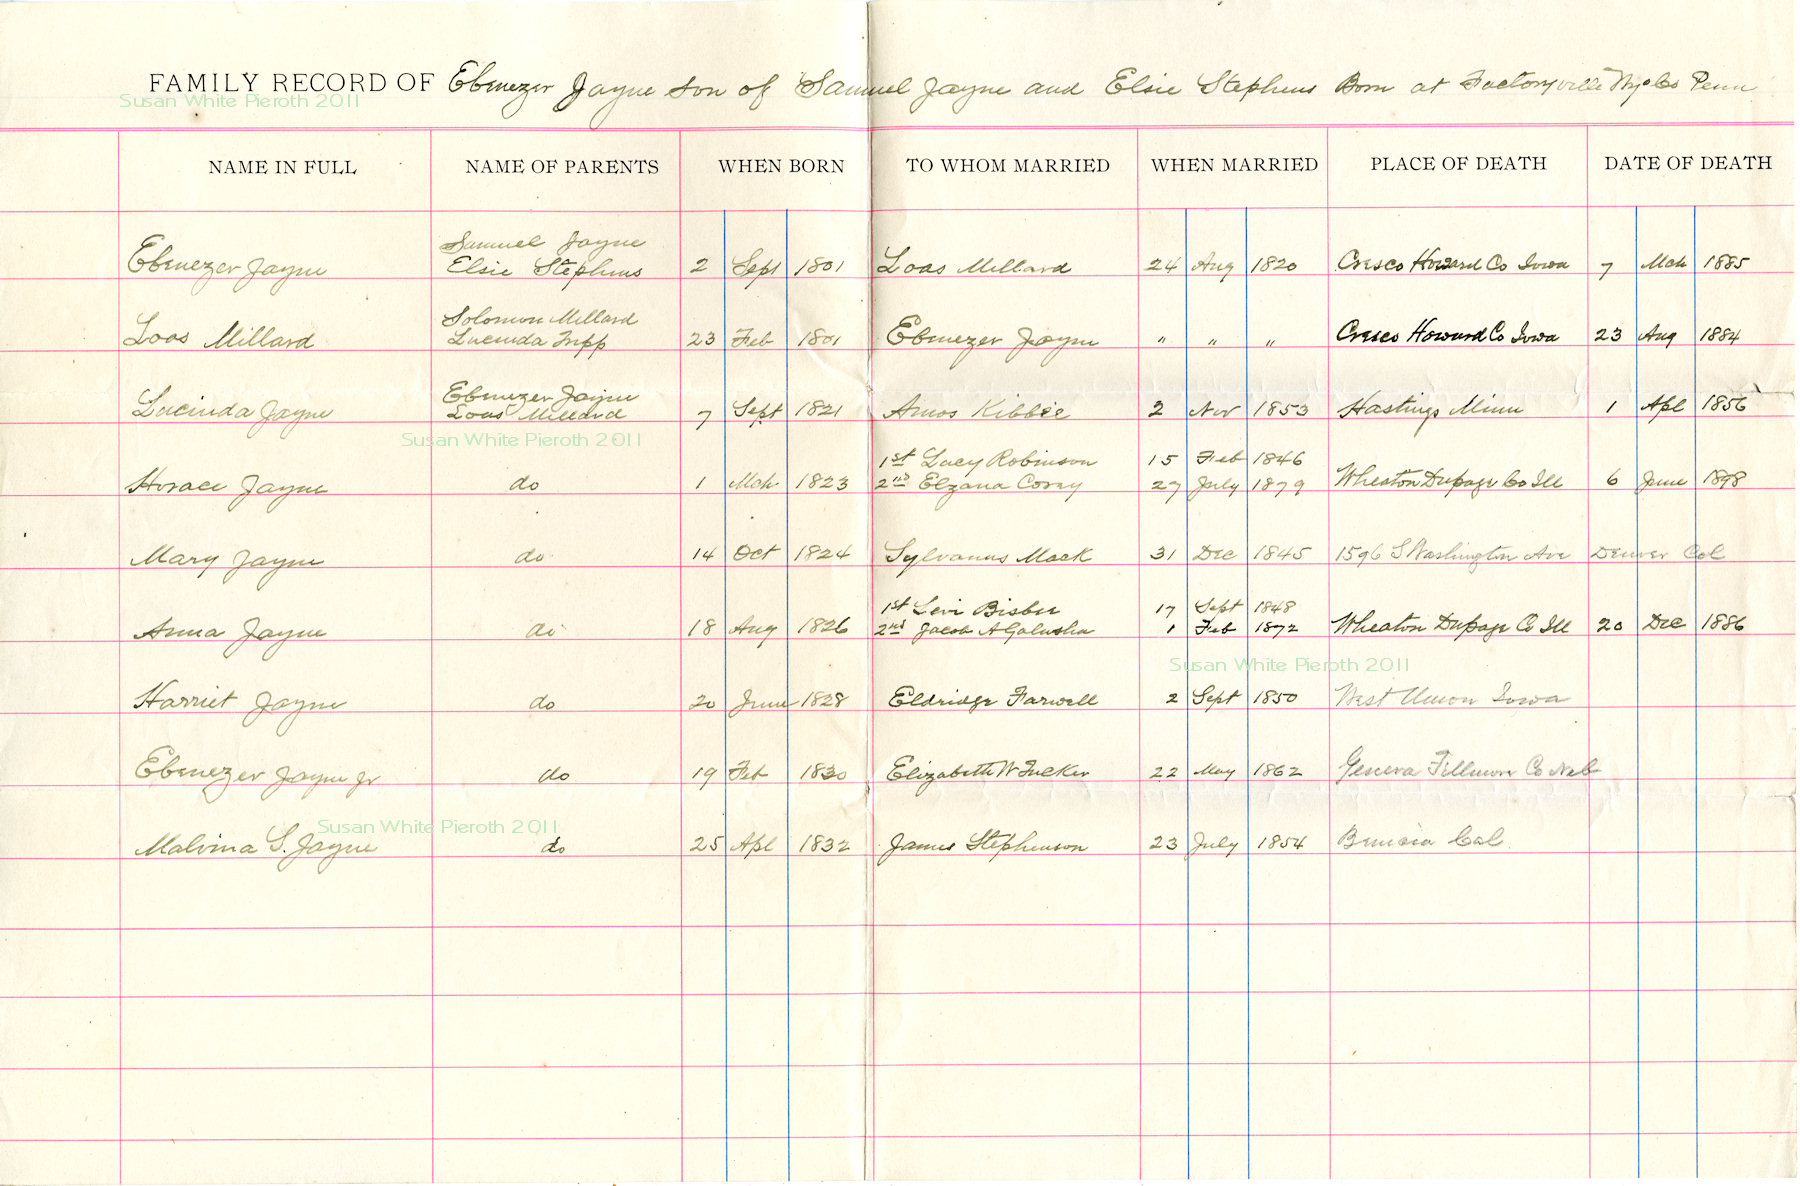 FAMILY RECORD OF Ebenezer Jayne son of Samuel Jayne and Elsie Stephens Born at Factoryville Wyo Co Penn
Susan White Pieroth 2011
NAME IN FULL NAME OF PARENTS WHEN BORN TO WHOM MARRIED WHEN MARRIED PLACE OF DEATH DATE OF DEATH
Samuel Jayne
Ebenezer Jayne Elsie Stephens 2 Sept 1801 Loas Millard 24 Aug 1820 Cresco Howard Co Iowa 7 Mch 1885
Solomon Millard
Loas Millard Lucinda Tripp 23 Feb 1801 Ebenezer Jayne " " " Cresco Howard Co Iowa 23 Aug 1884
Ebenezer Jayne
Lucinda Jayne Loas Millard 7 Sept 1821 Amos Kibbie 2 Nov 1853 Hastings Minn 1 Apl 1856
Susan White Pieroth 2011
1st Lucy Robinson 15 Feb 1846
Horace Jayne do 1 Mch 1823 2nd Elzana Corey 27 July 1879 Wheaton Dupage Co Ill 6 June 1898
Mary Jayne do 14 Oct 1824 Sylvanus Mack 31 Dec 1845 1596 S Washington Ave Denver Col
1st Levi Bisbee 17 Sept 1848
Anna Jayne do 18 Aug 1826 2nd Jacob A Galusha 1 Feb 1872 Wheaton Dupage Co Ill 20 Dec 1886
Susan White Pieroth 2011
Harriet Jayne do 20 June 1828 Eldridge Farwell 2 Sept 1850 West Union Iowa
Ebenezer Jayne Jr do 19 Feb 1830 Elizabeth W Tucker 22 May 1862 Geneva Fillmore Co Neb
Susan White Pieroth 2011
Malvina S. Jayne do 25 Apl 1832 James Stephenson 23 July 1854 Benicia Cal